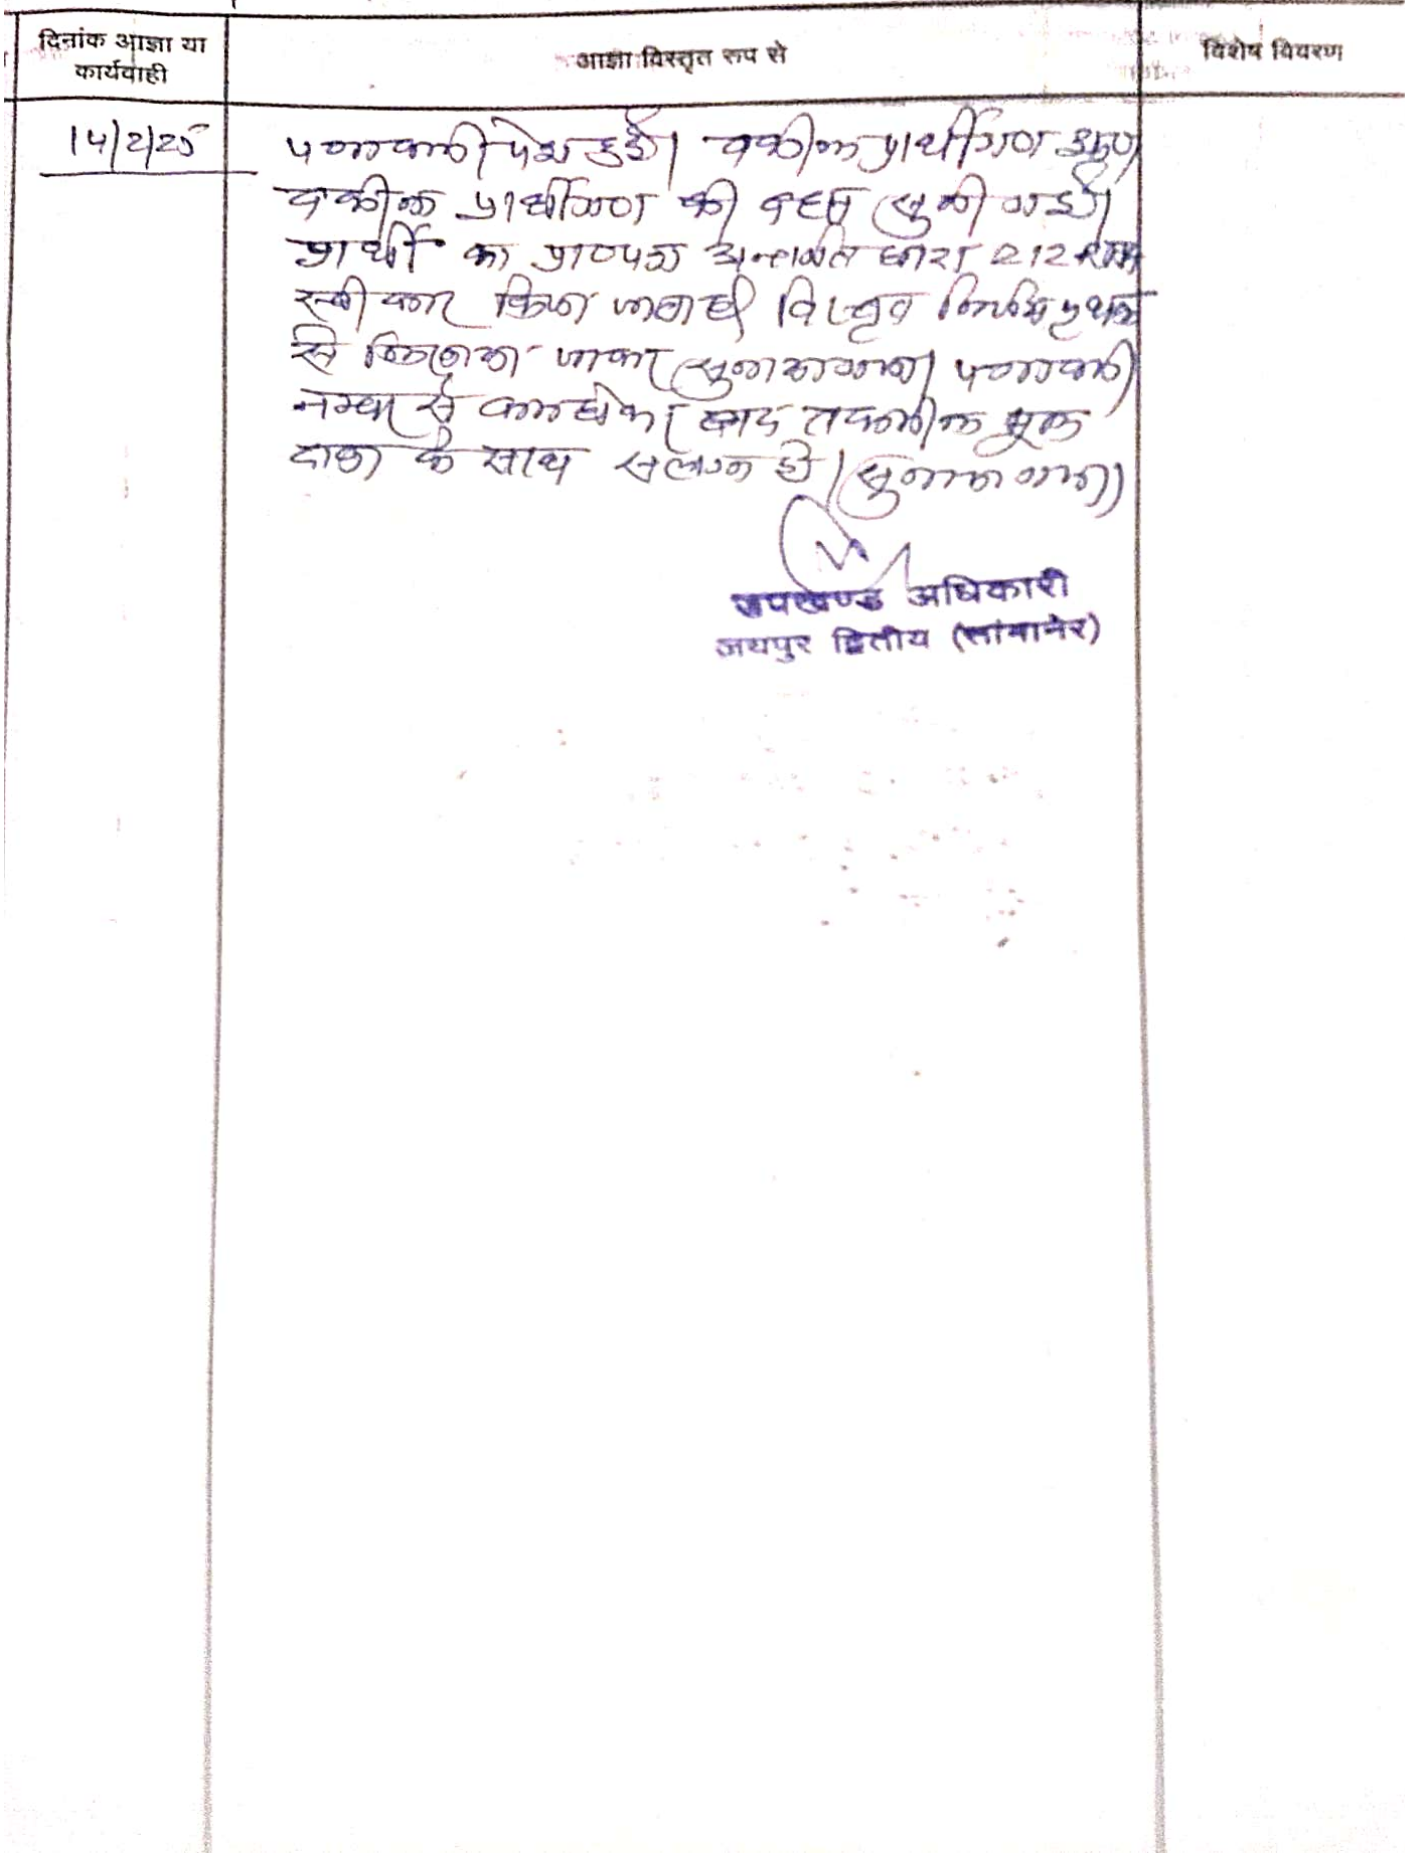 दिनांक आज्ञा या
कार्यवाही
आज्ञा विस्तृत रूप से
विशेष विवरण
14/2/25
पत्रावली पेश हुई। वकील प्रार्थीगण उप०
वकील प्रार्थीगण की बहस सुनी गई।
प्रार्थी का प्रा०पत्र अन्तर्गत धारा 212
स्वीकार किया जाता है। विस्तृत निर्णय पृथक
से लिखाया जाकर सुनाया गया। पत्रावली
नम्बर से कम होकर बाद तकमील मूल
दावा के साथ संलग्न हो। सुनाया गया।
उपखण्ड अधिकारी
जयपुर द्वितीय (सांगानेर)